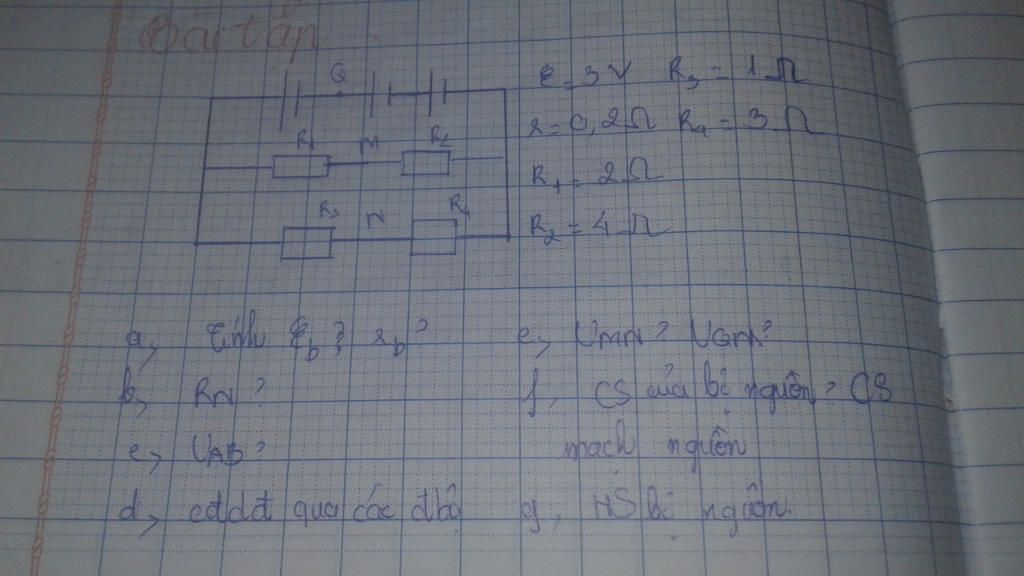 Bài tập.
Q
R1 M R2
R3 N R4
ℰ = 3V R3 = 1Ω
r = 0,2Ω R4 = 3Ω
R1 = 2Ω
R2 = 4Ω
a, Tính ℰb? rb?
b, RN?
c, UAB?
d, cđdđ qua các đ bộ
e, UMN? UQM?
f, CS của bộ nguồn? CS
mạch nguồn
g, HS bộ nguồn.